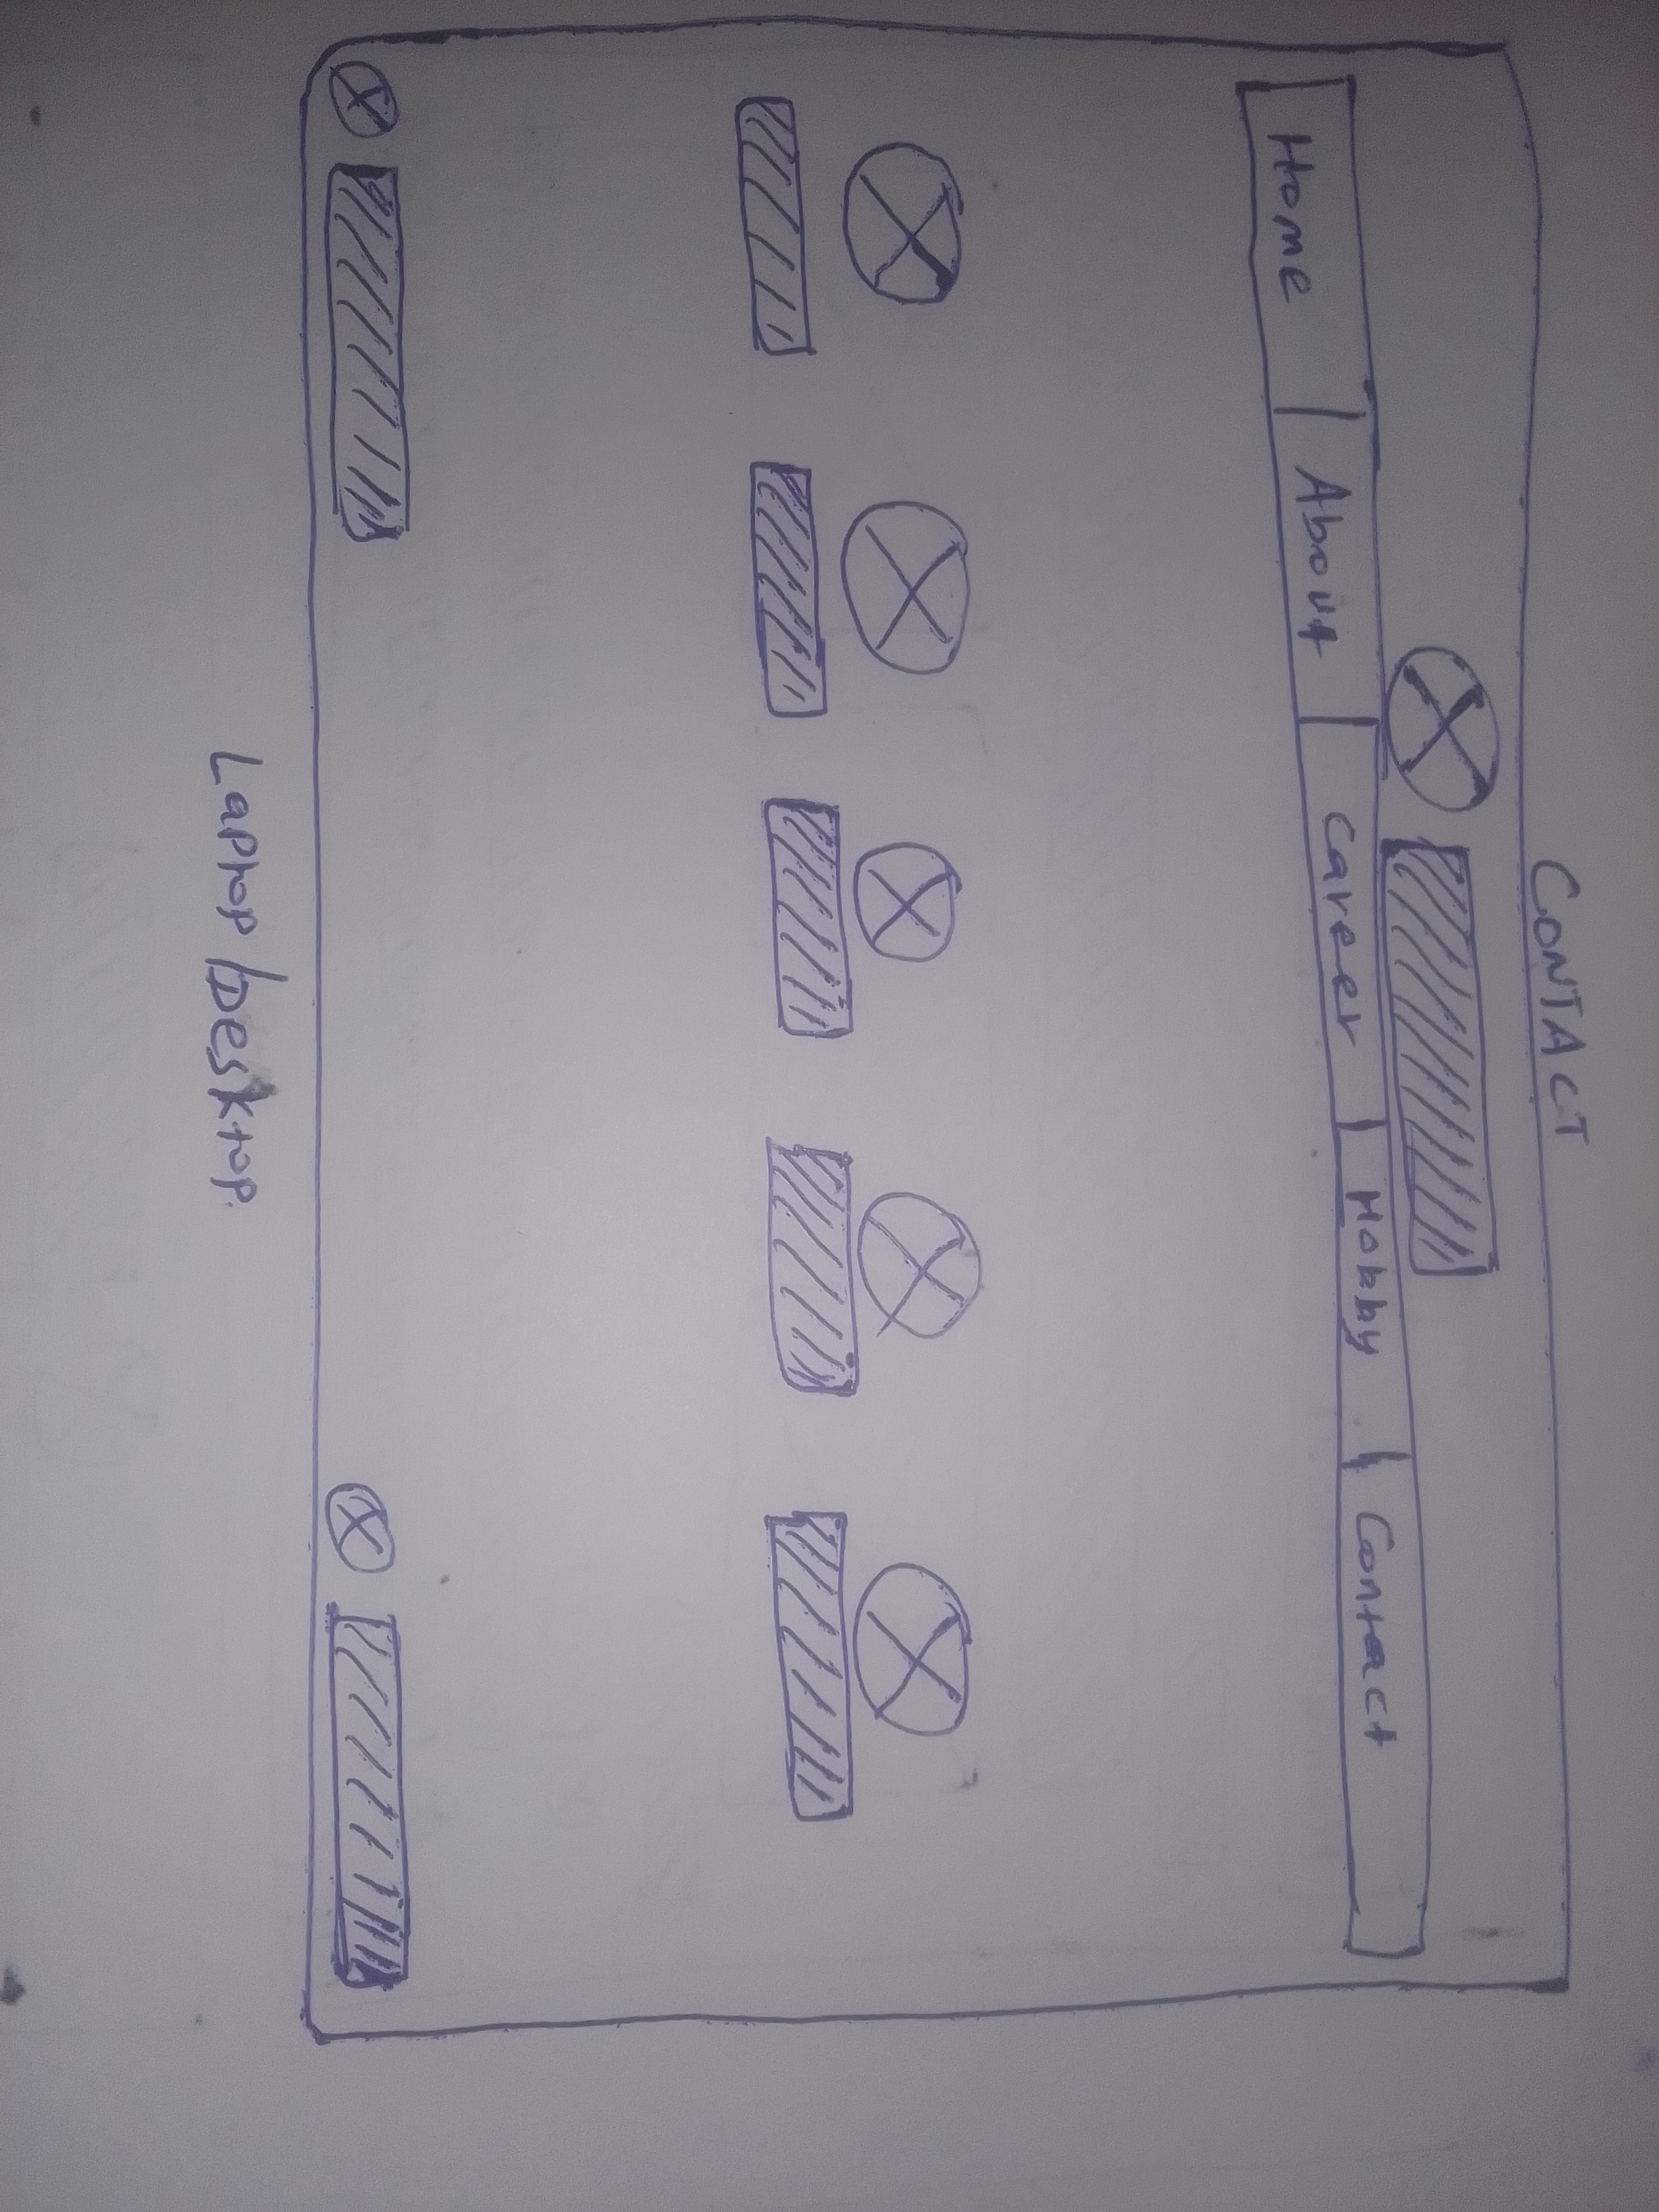 CONTACT
Home About Career Hobby Contact
Laptop/Desktop.